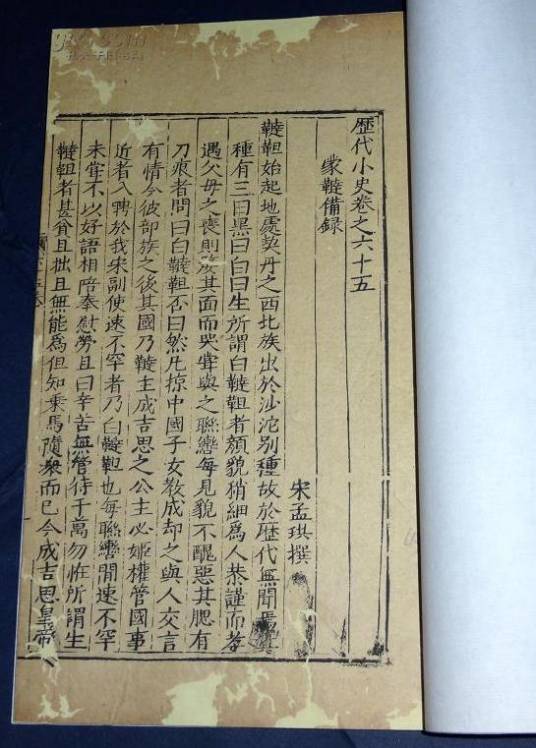 歷代小史卷之六十五
蒙韃備錄
宋孟珙撰
韃靼始起地處契丹之西北族出於沙沱別種故於歷代無聞焉其
種有三曰黑曰白曰生所謂白韃靼者顏貌稍細爲人恭謹而孝
遇父母之喪則剺其面而哭嘗與之聯轡每見貌不醜惡其腮有
刀痕者問曰白韃靼否曰然凡掠中國子女教成却之與人交言
有情今彼部族之後其國乃韃主成吉思之公主必姬權管國事
近者入聘於我宋副使速不罕者乃白韃靼也每聯轡間速不罕
未嘗不以好語相陪奉慰勞且曰辛苦無管待千萬勿恠所謂生
韃靼者甚貧且拙且無能爲但知乗馬隨衆而已今成吉思皇帝